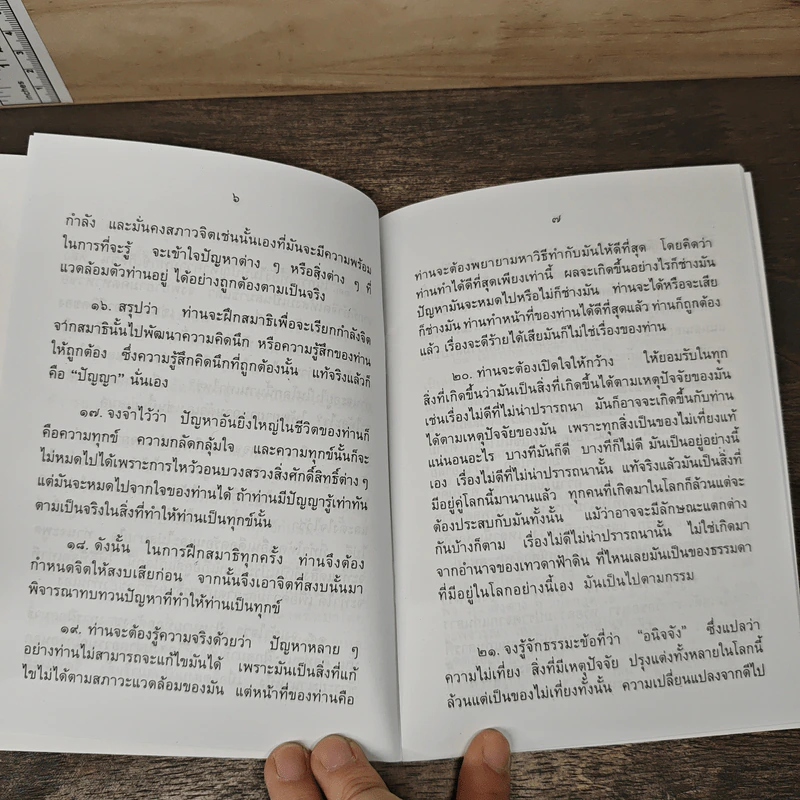 ๖
กำลัง และมั่นคงสภาวจิตเช่นนั้นเองที่มันจะมีความพร้อม
ในการที่จะรู้ จะเข้าใจปัญหาต่าง ๆ หรือสิ่งต่าง ๆ ที่
แวดล้อมตัวท่านอยู่ ได้อย่างถูกต้องตามเป็นจริง
๑๖. สรุปว่า ท่านจะฝึกสมาธิเพื่อจะเรียกกำลังจิต
จากสมาธินั้นไปพัฒนาความคิดนึก หรือความรู้สึกของท่าน
ให้ถูกต้อง ซึ่งความรู้สึกคิดนึกที่ถูกต้องนั้น แท้จริงแล้วก็
คือ “ปัญญา” นั่นเอง
๑๗. จงจำไว้ว่า ปัญหาอันยิ่งใหญ่ในชีวิตของท่านก็
คือความทุกข์ ความกลัดกลุ้มใจ และความทุกข์นั้นก็จะ
ไม่หมดไปได้เพราะการไหว้วอนบวงสรวงสิ่งศักดิ์สิทธิ์ต่าง ๆ
แต่มันจะหมดไปจากใจของท่านได้ ถ้าท่านมีปัญญารู้เท่าทัน
ตามเป็นจริงในสิ่งที่ทำให้ท่านเป็นทุกข์นั้น
๑๘. ดังนั้น ในการฝึกสมาธิทุกครั้ง ท่านจึงต้อง
กำหนดจิตให้สงบเสียก่อน จากนั้นจึงเอาจิตที่สงบนั้นมา
พิจารณาทบทวนปัญหาที่ทำให้ท่านเป็นทุกข์
๑๙. ท่านจะต้องรู้ความจริงด้วยว่า ปัญหาหลาย ๆ
อย่างท่านไม่สามารถจะแก้ไขมันได้ เพราะมันเป็นสิ่งที่แก้
ไขไม่ได้ตามสภาวะแวดล้อมของมัน แต่หน้าที่ของท่านคือ
๗
ท่านจะต้องพยายามหาวิธีทำกับมันให้ดีที่สุด โดยคิดว่า
ท่านทำได้ดีที่สุดเพียงเท่านี้ ผลจะเกิดขึ้นอย่างไรก็ช่างมัน
ปัญหามันจะหมดไปหรือไม่ก็ช่างมัน ท่านจะได้หรือจะเสีย
ก็ช่างมัน ท่านทำหน้าที่ของท่านได้ดีที่สุดแล้ว ท่านก็ถูกต้อง
แล้ว เรื่องจะดีร้ายได้เสียมันก็ไม่ใช่เรื่องของท่าน
๒๐. ท่านจะต้องเปิดใจให้กว้าง ให้ยอมรับในทุก
สิ่งที่เกิดขึ้นว่ามันเป็นสิ่งที่เกิดขึ้นได้ตามเหตุปัจจัยของมัน
เช่นเรื่องไม่ดีที่ไม่น่าปรารถนา มันก็อาจจะเกิดขึ้นกับท่าน
ได้ตามเหตุปัจจัยของมัน เพราะทุกสิ่งเป็นของไม่เที่ยงแท้
แน่นอนอะไร บางทีมันก็ดี บางทีก็ไม่ดี มันเป็นอยู่อย่างนี้
เอง เรื่องไม่ดีที่ไม่น่าปรารถนานั้น แท้จริงแล้วมันเป็นสิ่งที่
มีอยู่คู่โลกนี้มานานแล้ว ทุกคนที่เกิดมาในโลกก็ล้วนแต่จะ
ต้องประสบกับมันทั้งนั้น แม้ว่าอาจจะมีลักษณะแตกต่าง
กันบ้างก็ตาม เรื่องไม่ดีไม่น่าปรารถนานั้น ไม่ใช่เกิดมา
จากอำนาจของเทวดาฟ้าดิน ที่ไหนเลยมันเป็นของธรรมดา
ที่มีอยู่ในโลกอย่างนี้เอง มันเป็นไปตามกรรม
๒๑. จงรู้จักธรรมะข้อที่ว่า “อนิจจัง” ซึ่งแปลว่า
ความไม่เที่ยง สิ่งที่มีเหตุปัจจัย ปรุงแต่งทั้งหลายในโลกนี้
ล้วนแต่เป็นของไม่เที่ยงทั้งนั้น ความเปลี่ยนแปลงจากดีไป